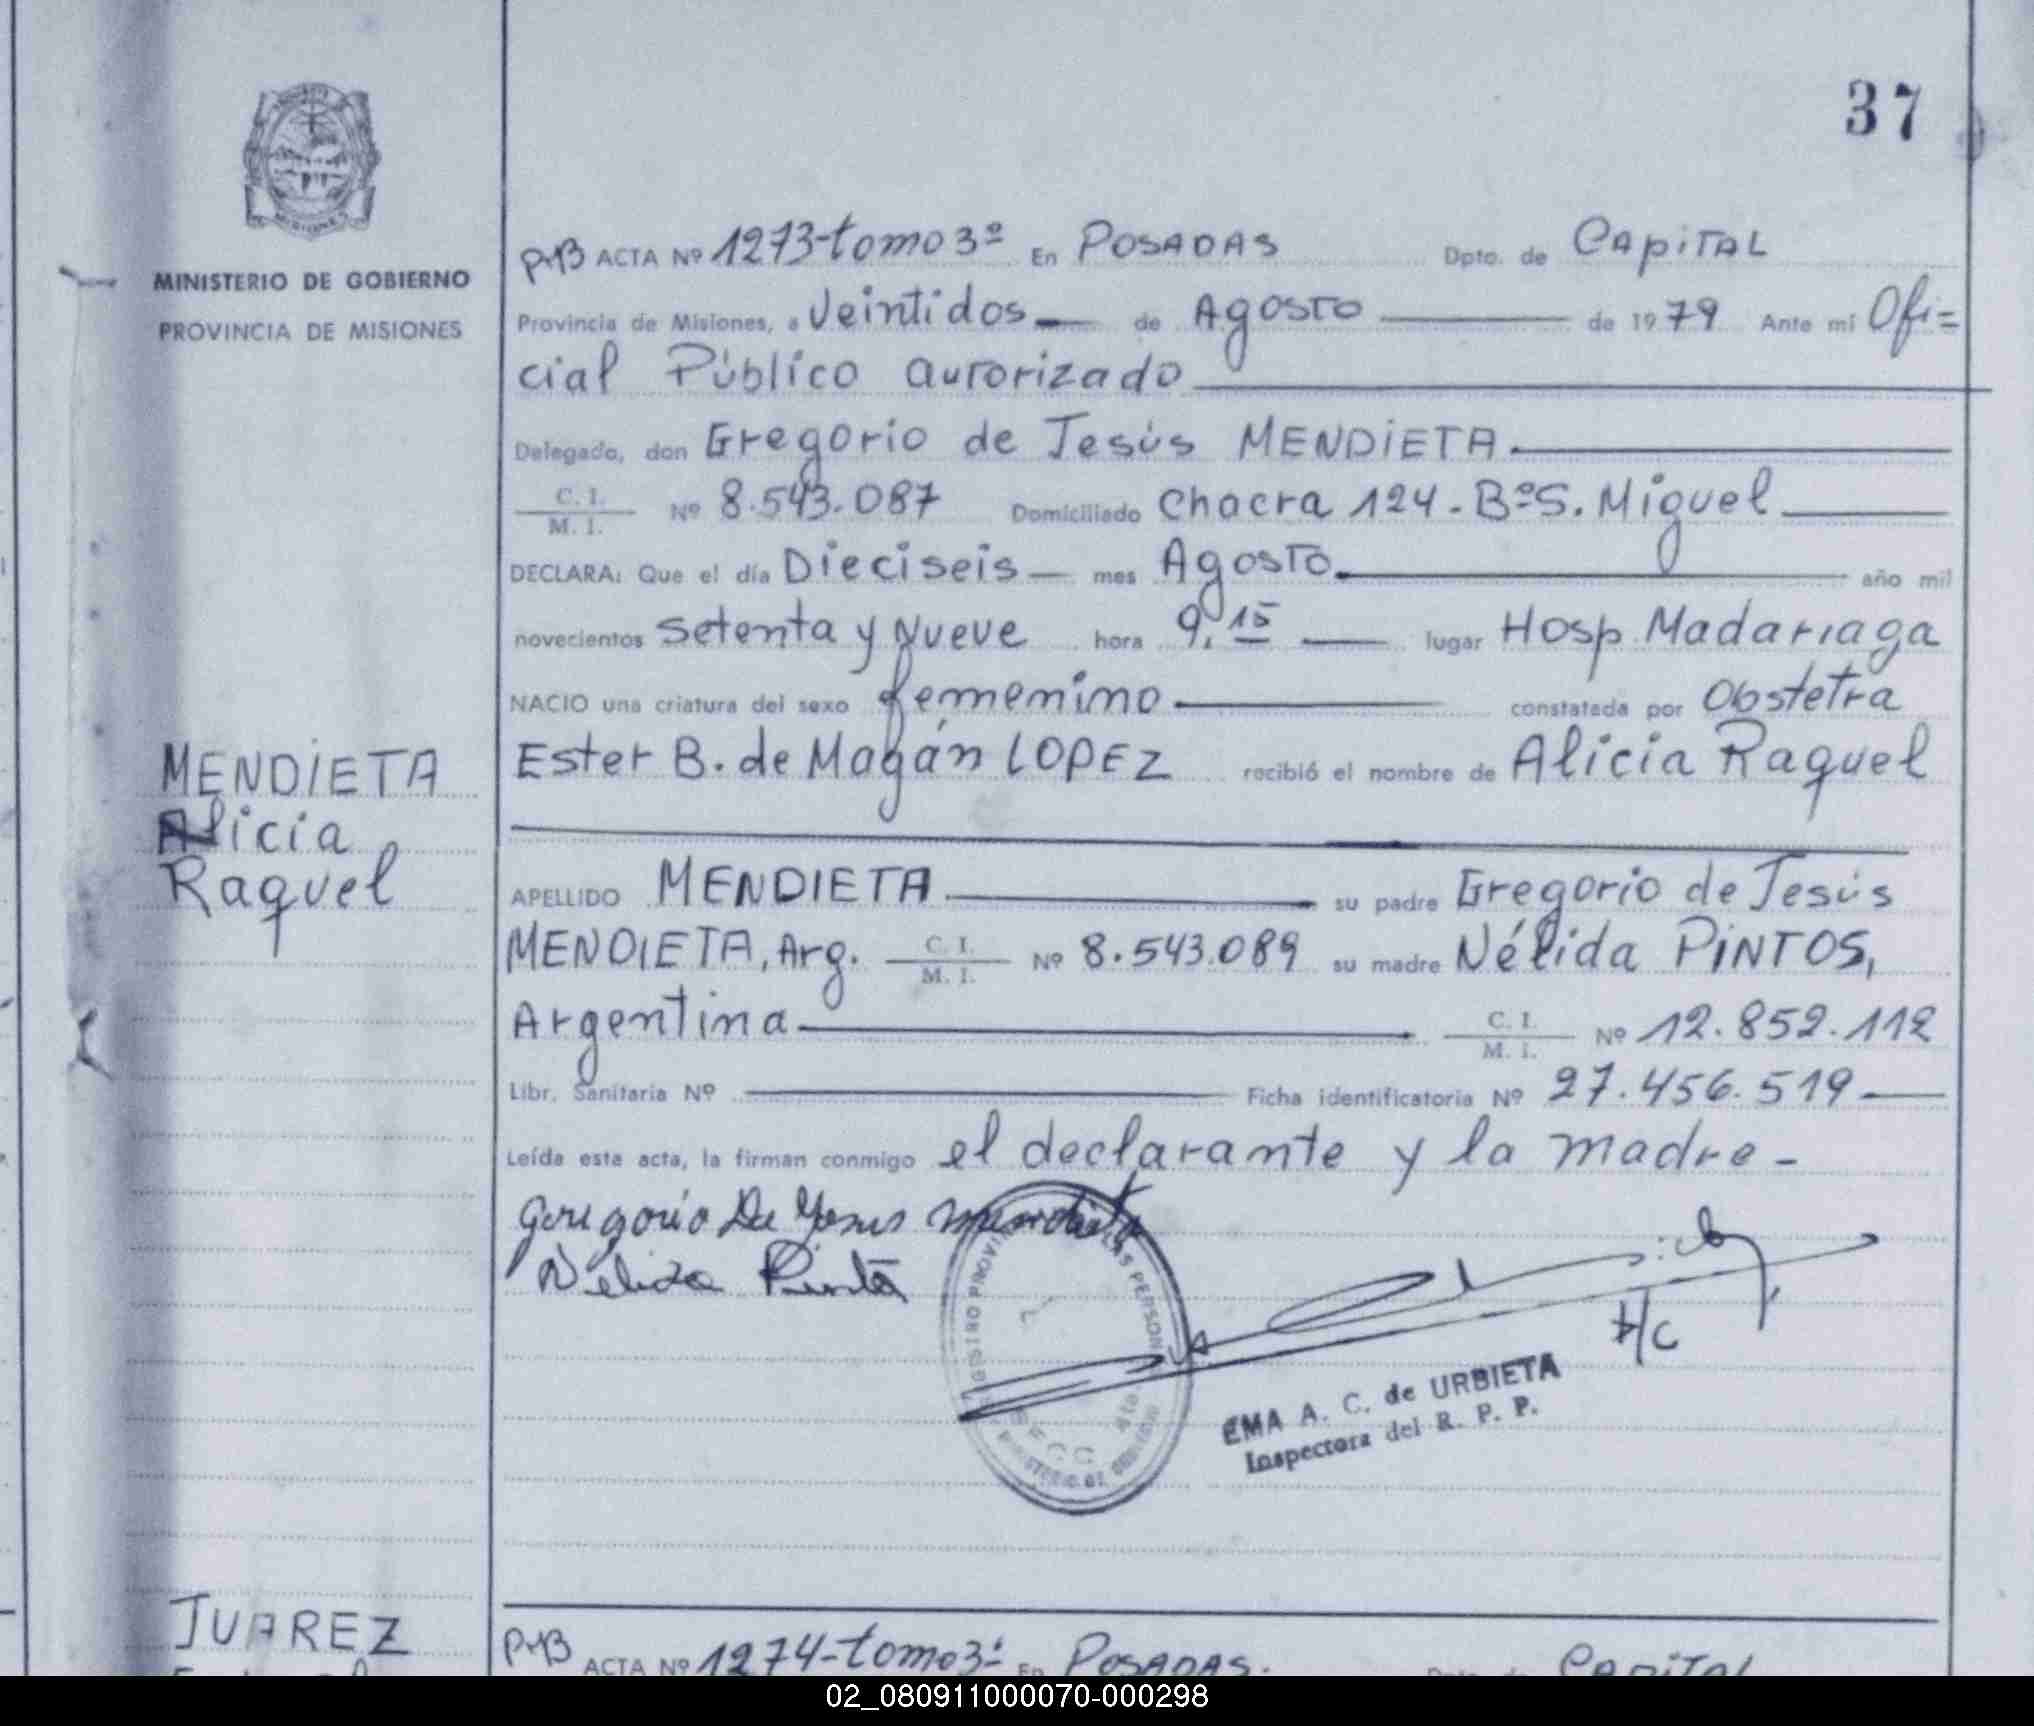 37
MINISTERIO DE GOBIERNO
PROVINCIA DE MISIONES
ACTA Nº 1273-tomo 3º En POSADAS Dpto. de CAPITAL
Provincia de Misiones, a Veintidos de Agosto de 1979 Ante mí Ofi=
cial Público autorizado
Delegado, don Gregorio de Jesús MENDIETA
C. I.
M. I. Nº 8.543.087 Domiciliado Chacra 124 - Bº S. Miguel
DECLARA: Que el día Dieciseis mes Agosto año mil
novecientos setenta y Nueve hora 9,15 lugar Hosp. Madariaga
NACIO una criatura del sexo femenino constatada por Obstetra
Ester B. de Magán LOPEZ recibió el nombre de Alicia Raquel
MENDIETA
Alicia
Raquel
APELLIDO MENDIETA su padre Gregorio de Jesús
MENDIETA, Arg. C. I.
M. I. Nº 8.543.089 su madre Nélida PINTOS,
Argentina C. I.
M. I. Nº 12.852.112
Libr. Sanitaria Nº Ficha identificatoria Nº 27.456.519
Leída esta acta, la firman conmigo el declarante y la madre -
Gregorio De Jesus Mendieta
Nelida
EMA A. C. de URBIETA
Inspectora del R. P. P.
JUAREZ
ACTA Nº 1274-tomo 3º En POSADAS. Dpto. de CAPITAL
02_080911000070-000298